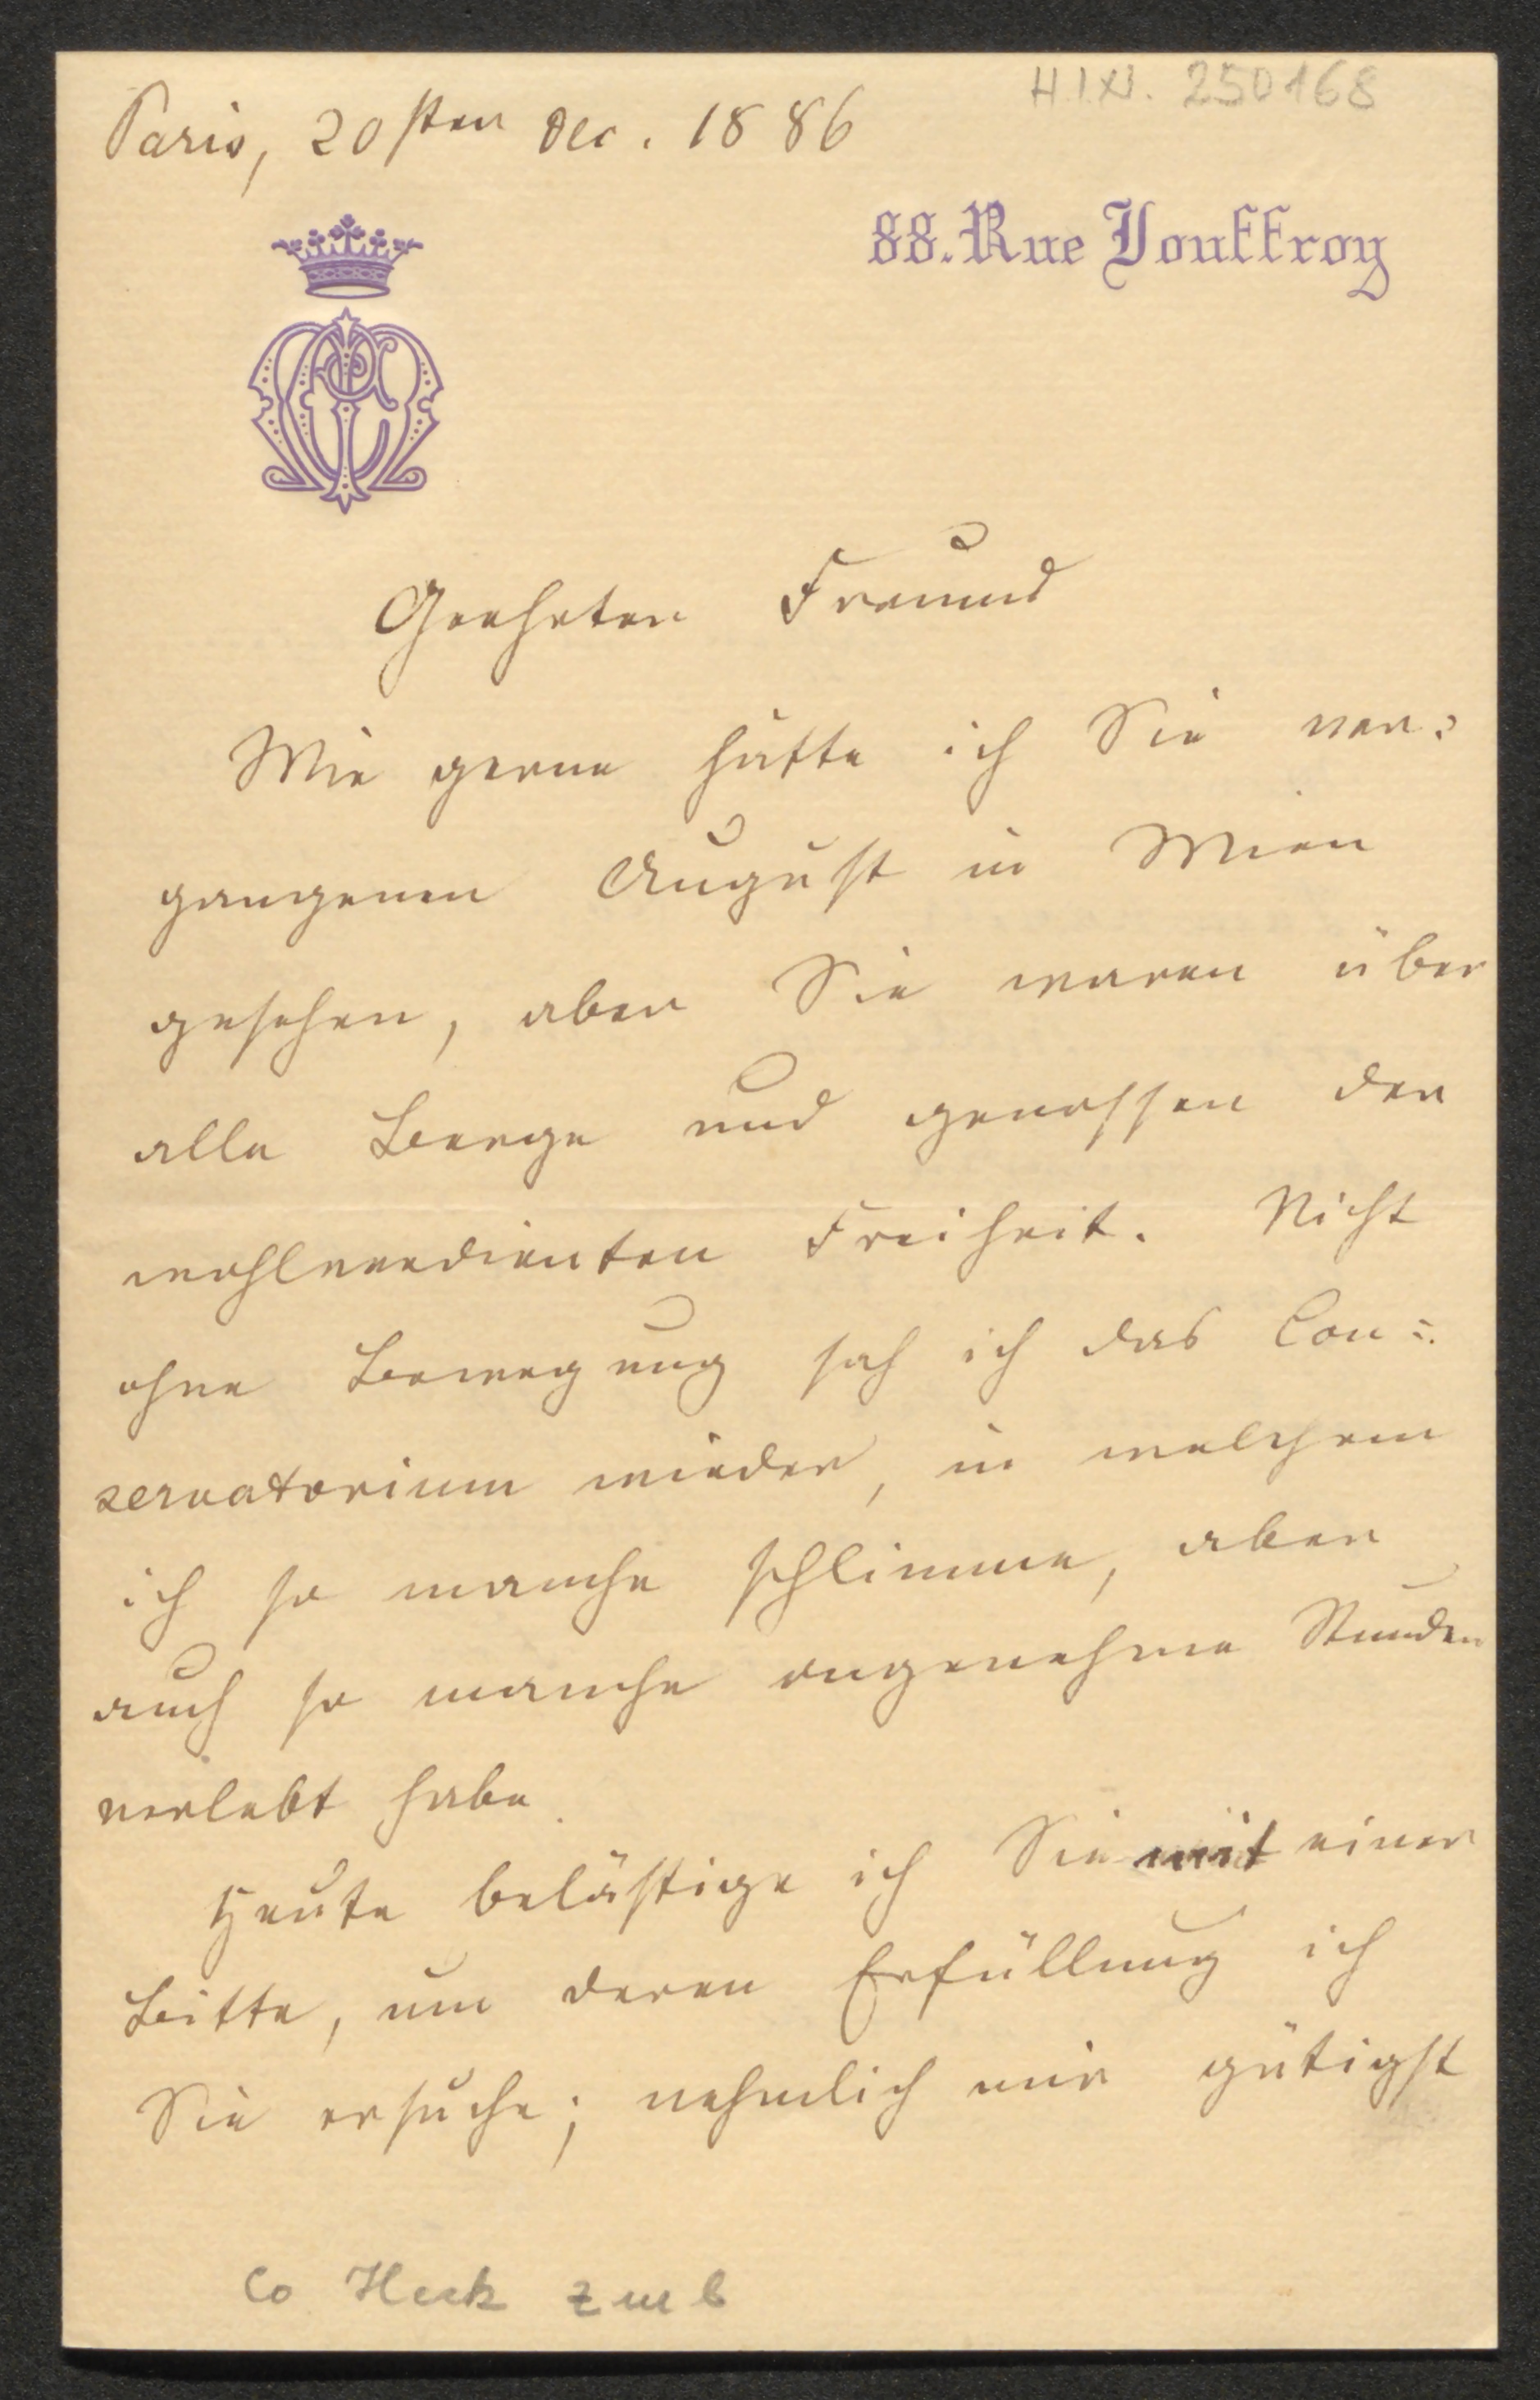 H.I.N. 250168
Paris, 20sten Dec. 1886
88. Rue Jouffroy
Geehrter Freund
Wie gerne hätte ich Sie ver=
gangenen August in Wien
gesehen, aber Sie waren über
alle Berge und genossen der
wohlverdienten Freiheit. Nicht
ohne Bewegung sah ich das Con=
servatorium wieder, in welchem
ich so manche schlimme, aber
auch so manche angenehme Stunden
verlebt habe.
Heute belästige ich Sie mit einer
Bitte, um deren Erfüllung ich
Sie ersuche; nehmlich mir gütigst
Co